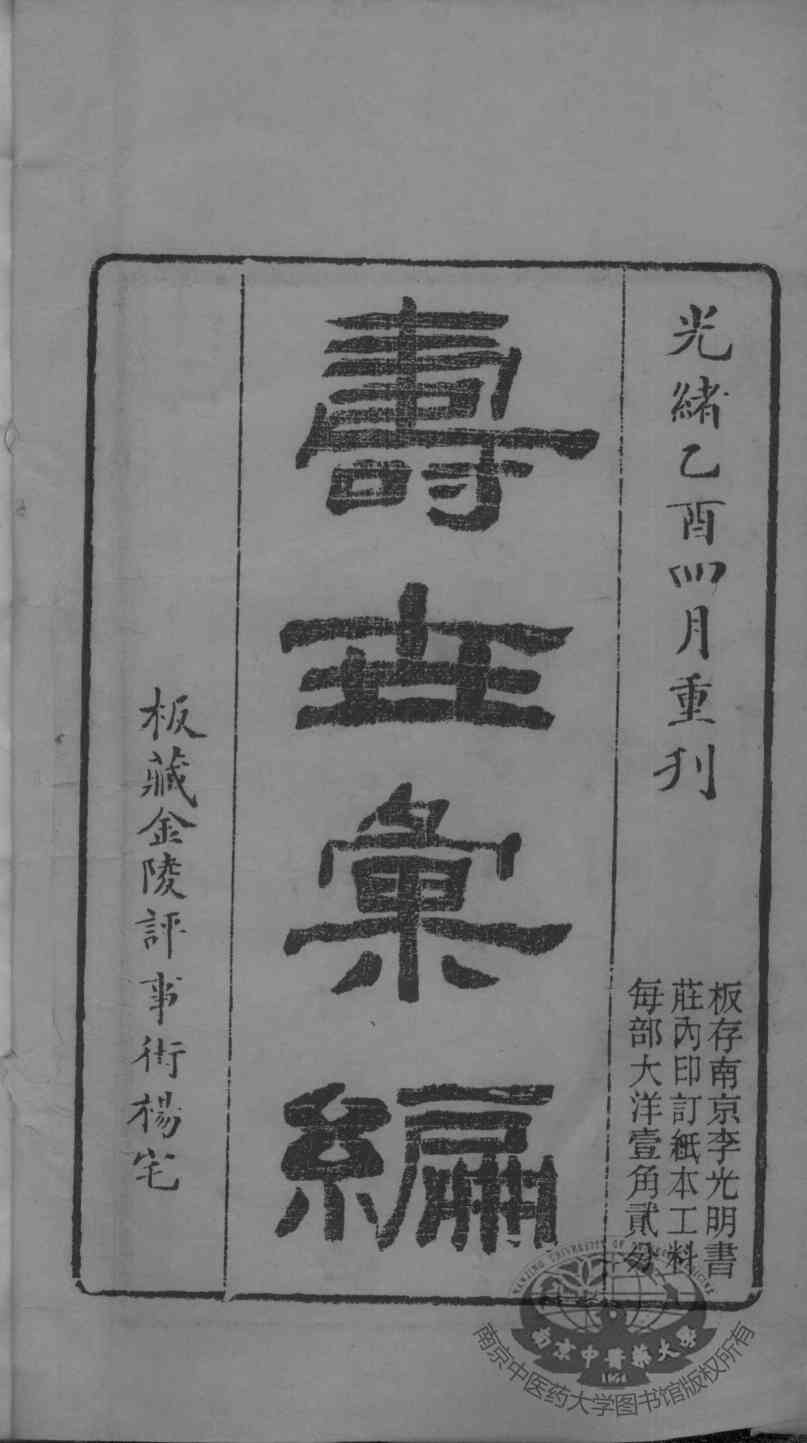 光緒乙酉四月重刊
板存南京李光明書
莊內印訂紙本工料
每部大洋壹角貳分
壽世彙編
板藏金陵評事街楊宅
NANJING UNIVERSITY OF CHINESE MEDICINE
南京中醫藥大學
1954
南京中医药大学图书馆版权所有